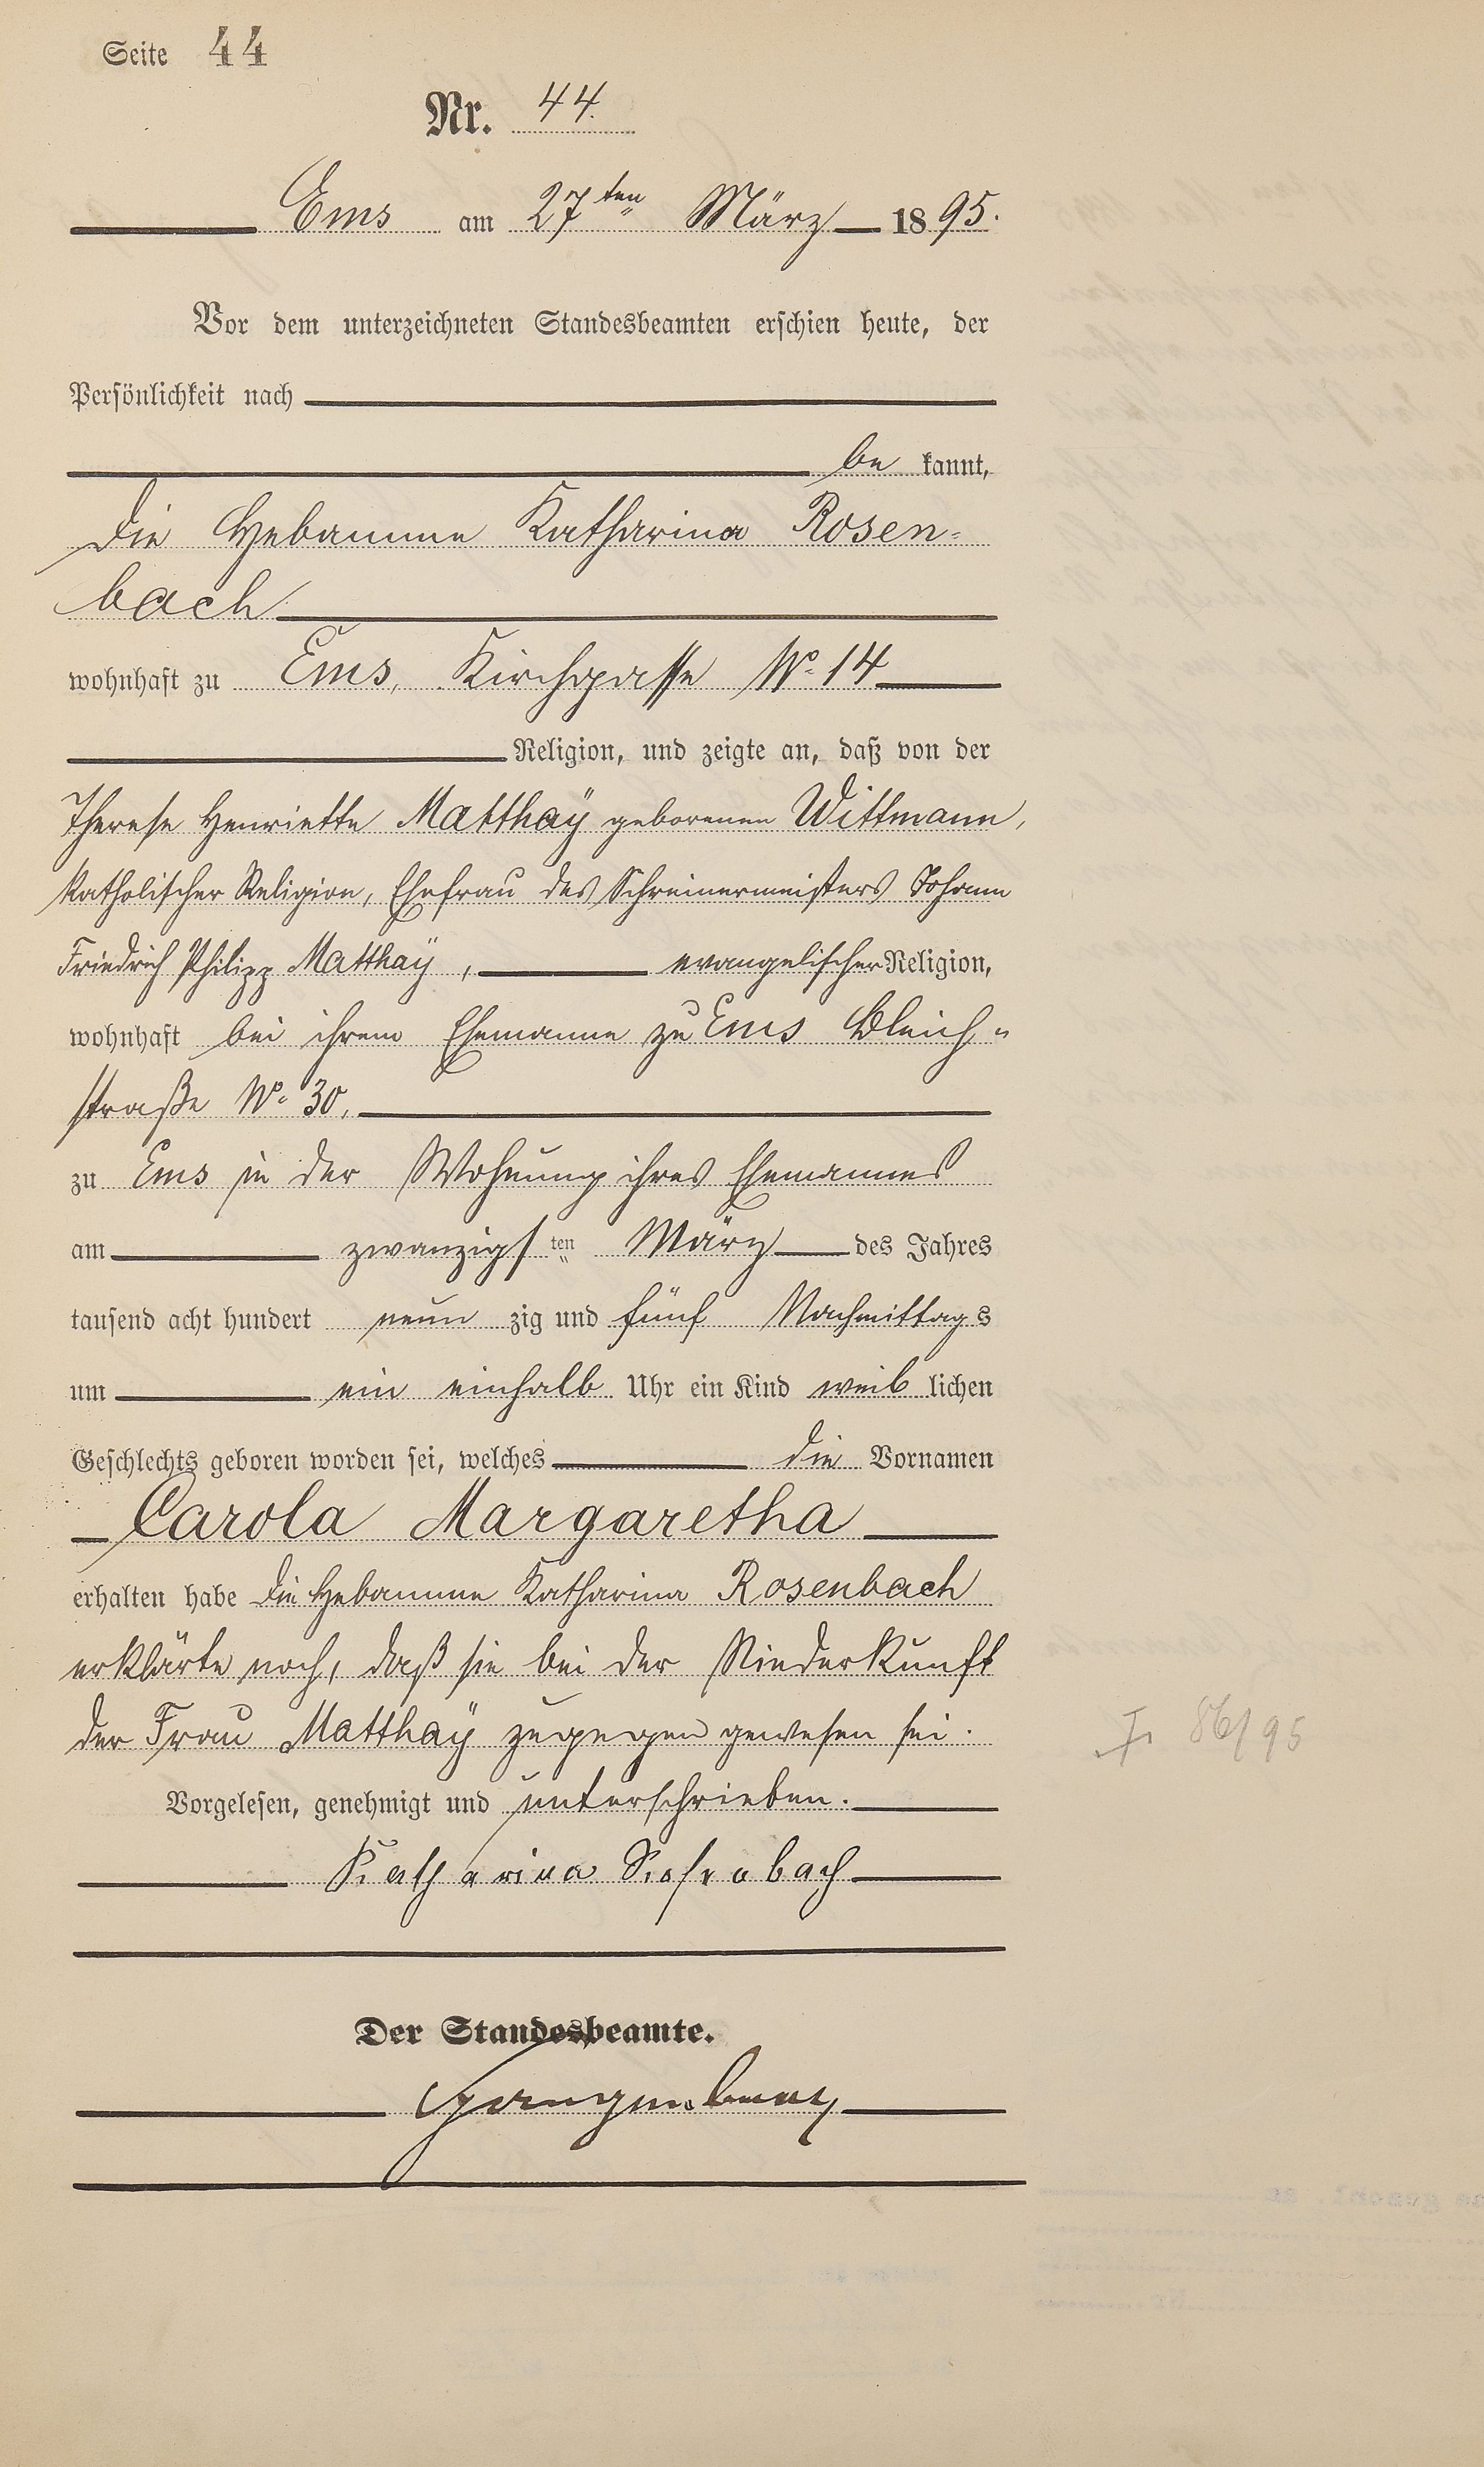 Seite 44
Nr. 44.
Ems am 27ten März 1895.
Vor dem unterzeichneten Standesbeamten erschien heute, der
Persönlichkeit nach
be kannt,
die Hebamme Katharina Rosen-
bach
wohnhaft zu Ems, Kirchgasse No. 14
Religion, und zeigte an, daß von der
Therese Henriette Matthaÿ geborenen Wittmann,
katholischer Religion, Ehefrau des Schreinermeisters Johann
Friedrich Philipp Matthaÿ, evangelischer Religion,
wohnhaft bei ihrem Ehemanne zu Ems Bleich-
straße No. 30,
zu Ems in der Wohnung ihres Ehemannes
am zwanzigsten März des Jahres
tausend acht hundert neun zig und fünf Nachmittags
um ein einhalb Uhr ein Kind weib lichen
Geschlechts geboren worden sei, welches die Vornamen
Carola Margaretha
erhalten habe die Hebamme Katharina Rosenbach
erklärte noch, daß sie bei der Niederkunft
der Frau Matthaÿ zugegen gewesen sei.
Vorgelesen, genehmigt und unterschrieben.
Katharina Rosenbach
Der Standesbeamte.
I. 86/95